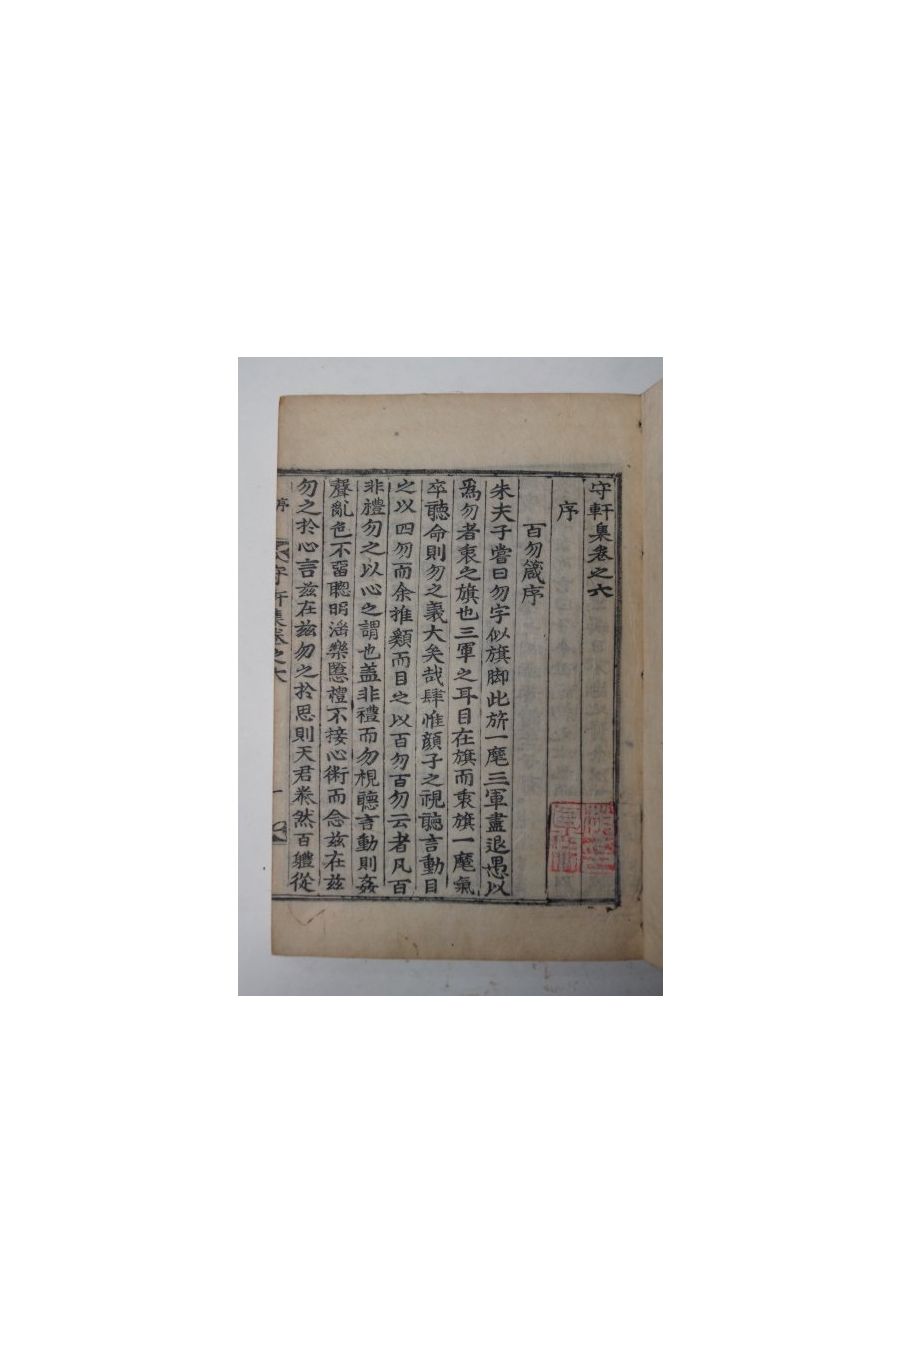 守軒集卷之六
序
百勿箴序
朱夫子嘗曰勿字似旗脚此旂一麾三軍盡退愚以
爲勿者衷之旗也三軍之耳目在旗而衷旗一麾氣
卒聽命則勿之義大矣哉肆惟顔子之視聽言動目
之以四勿而余推類而目之以百勿百勿云者凡百
非禮勿之以心之謂也盖非禮而勿視聽言動則姦
聲亂色不留聰明滛樂慝禮不接心術而念兹在兹
勿之於心言兹在兹勿之於思則天君泰然百軆從
序 守軒集卷之六 一